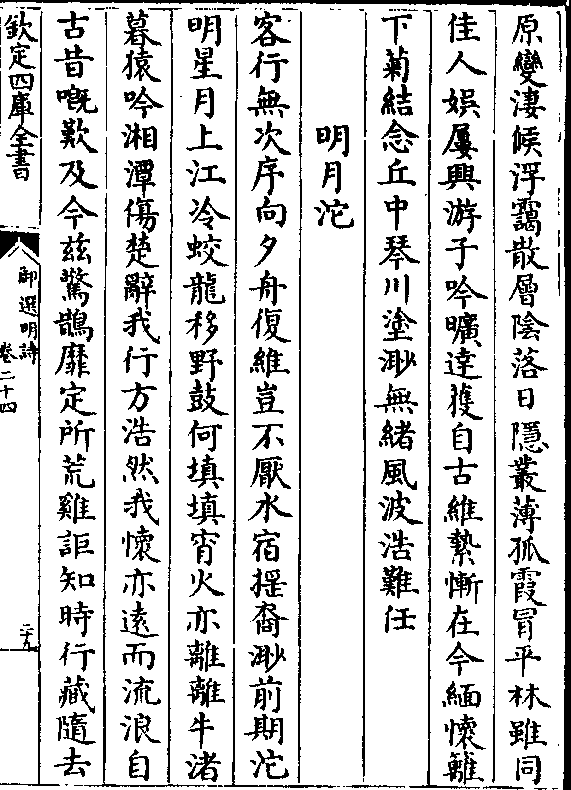 原變淒候浮靄散層陰落日隱叢薄孤霞冒平林雖同
佳人娯屢興游子吟曠達獲自古維縶慚在今緬懷籬
下菊結念丘中琴川塗渺無緒風波浩難任
明月沱
客行無次序向夕舟復維豈不厭水宿揺裔渺前期沱
明星月上江冷蛟龍移野鼓何填填宵火亦離離牛渚
暮猿吟湘潭傷楚辭我行方浩然我懷亦逺而流浪自
古昔嘅歎及今兹驚鵲靡定所荒雞詎知時行藏隨去
欽定四庫全書
御選明詩
卷二十四
二九